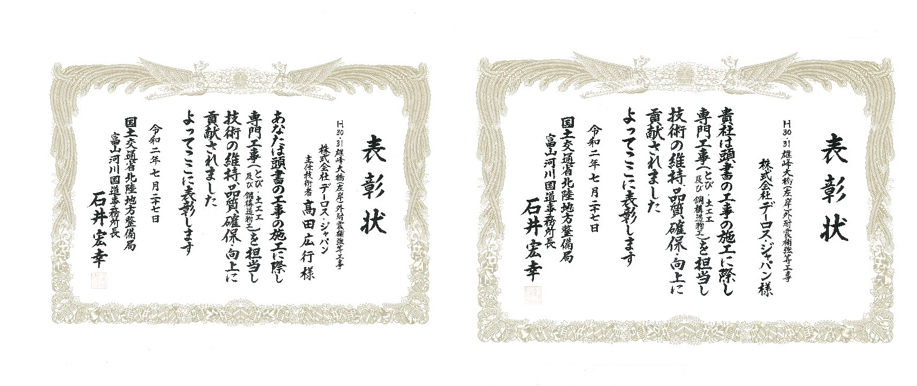 表彰状
H30・31雄峰大橋(左岸)外耐震補強等工事
株式会社デーロス・ジャパン
主任技術者 高田広行様
あなたは頭書の工事の施工に際し
専門工事(とび・土工工及び鋼構造物工)を担当し
技術の維持品質確保向上に
貢献されました
よってここに表彰します
令和二年七月二十七日
国土交通省北陸地方整備局
富山河川国道事務所長
石井宏幸
表彰状
H30・31雄峰大橋(左岸)外耐震補強等工事
株式会社デーロス・ジャパン様
貴社は頭書の工事の施工に際し
専門工事(とび・土工工及び鋼構造物工)を担当し
技術の維持品質確保向上に
貢献されました
よってここに表彰します
令和二年七月二十七日
国土交通省北陸地方整備局
富山河川国道事務所長
石井宏幸